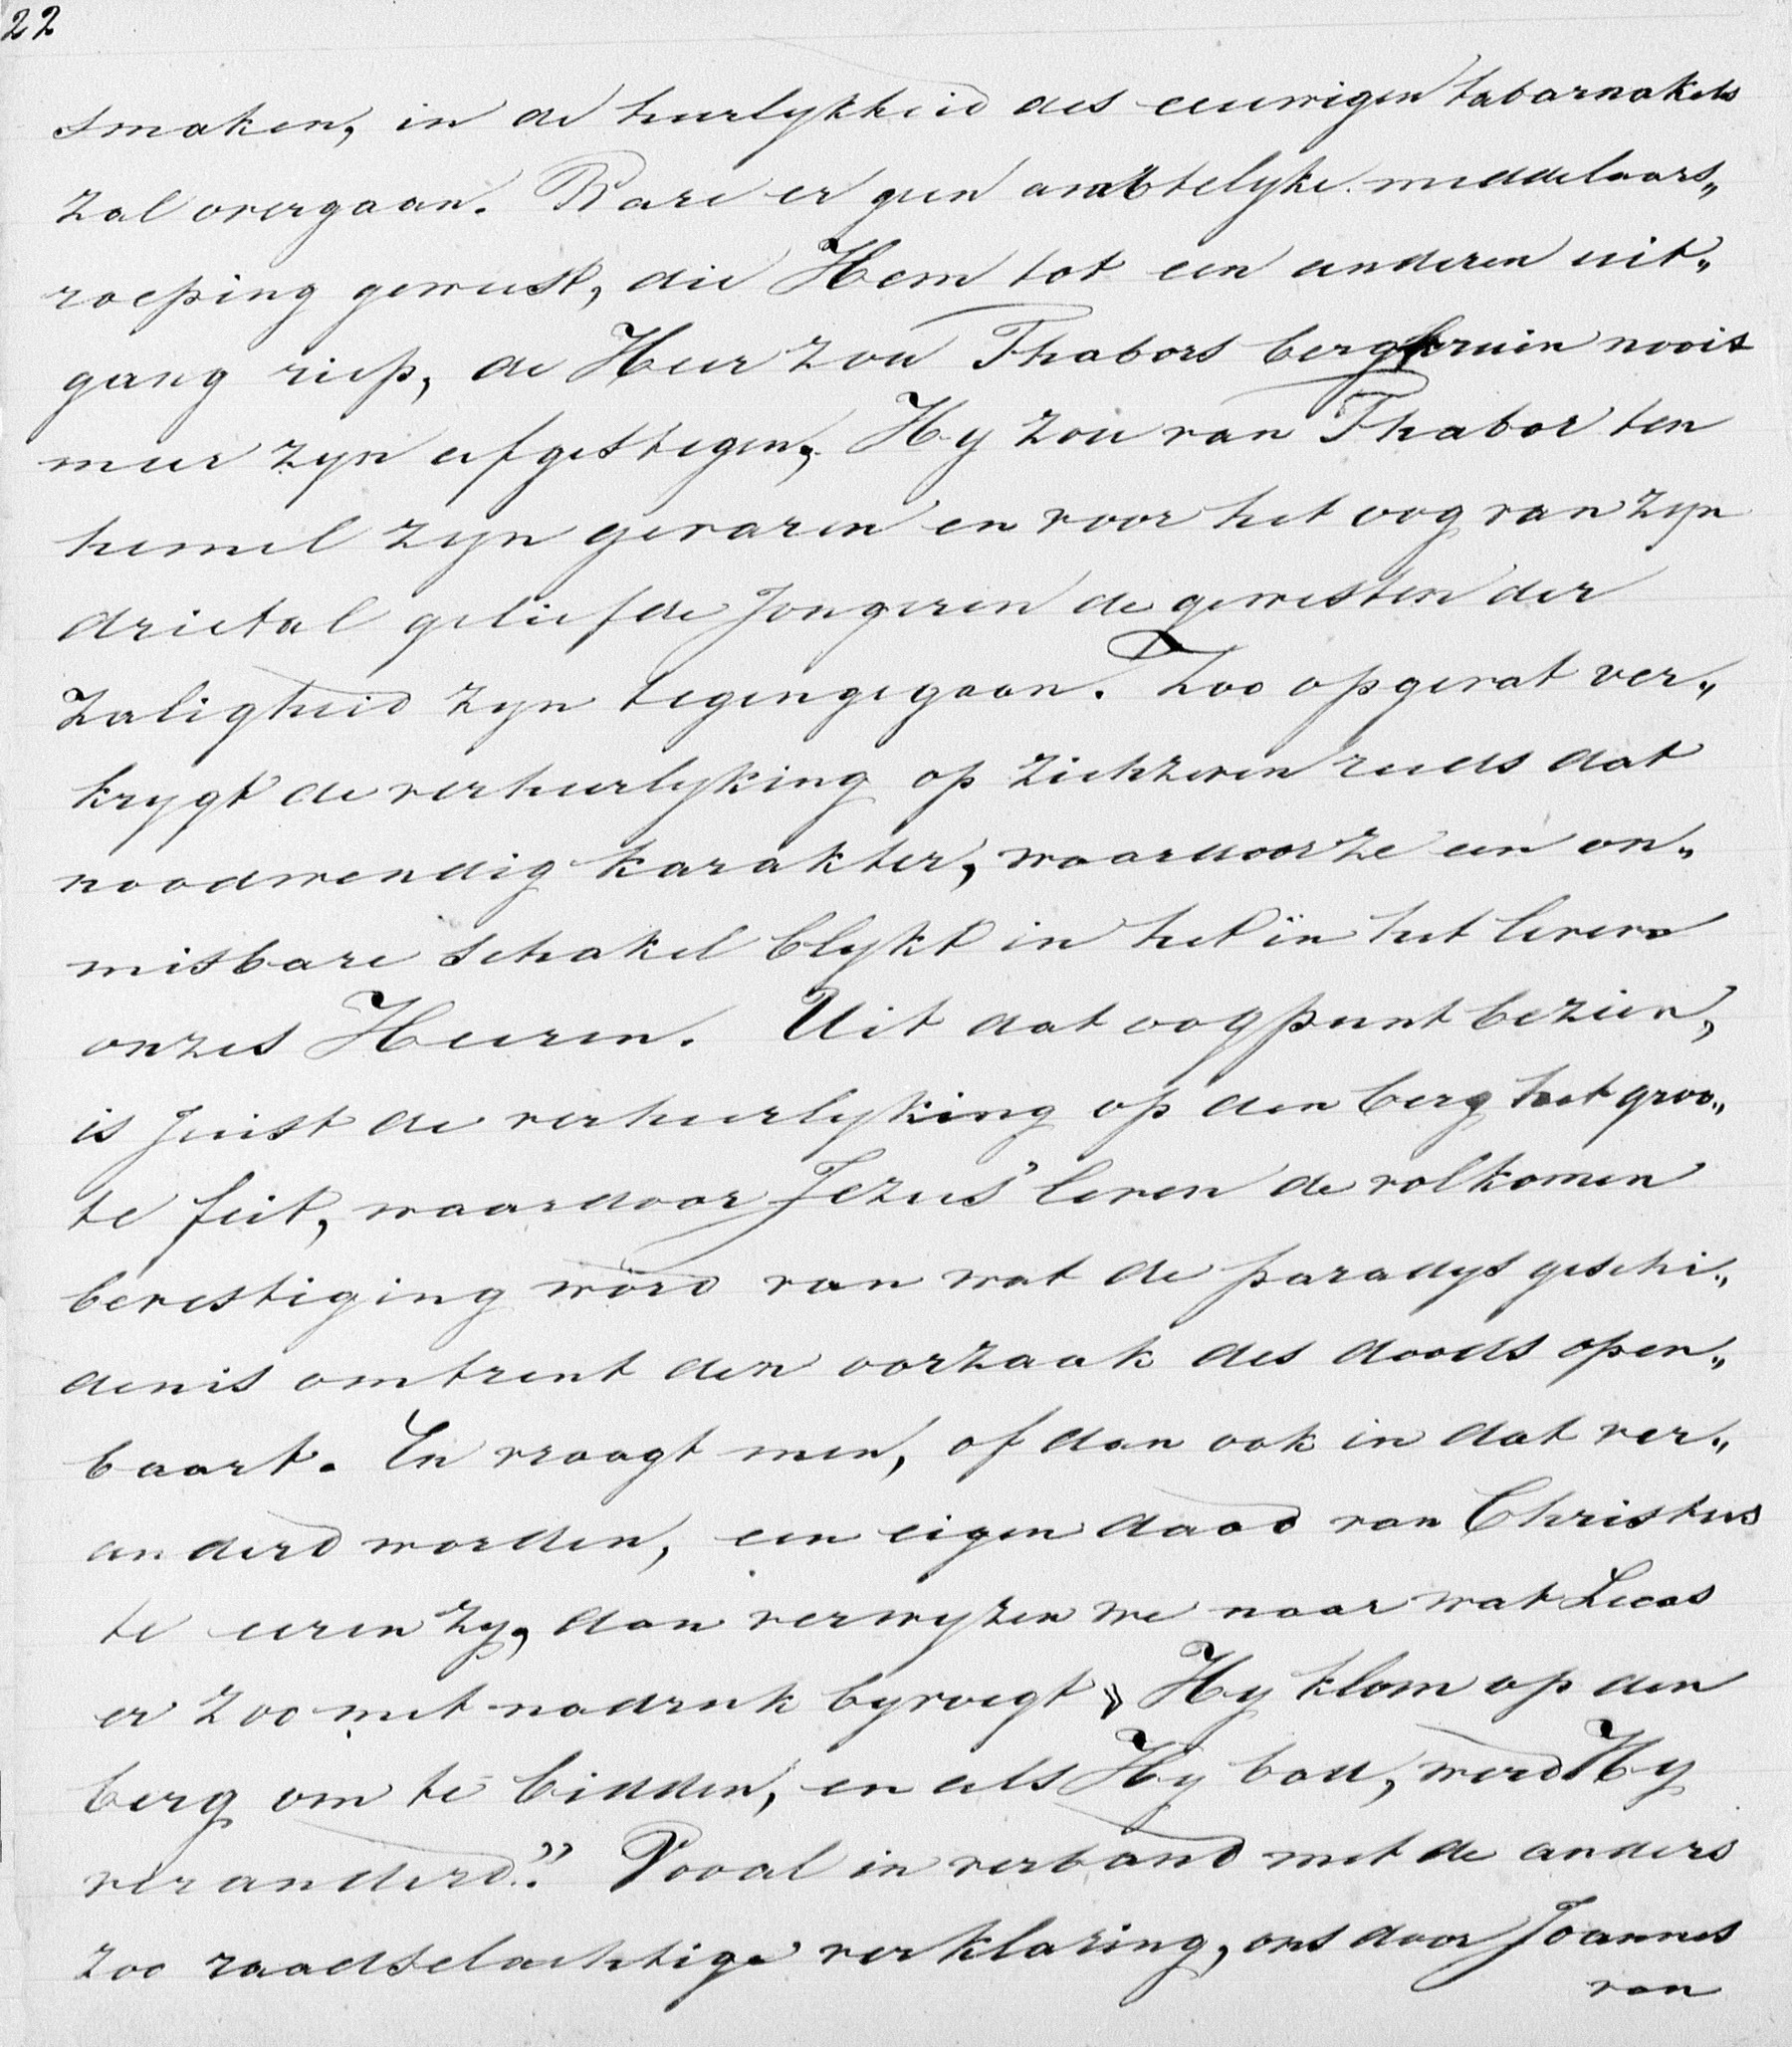 22
smaken, in de heerlykheid des eeuwigen tabarnakels
zal overgaan. Ware er geen ambtelyke middelaars„
roeping geweest, die Hem tot een anderen uit„
gang riep, de Heer zou Thabors bergkruin nooit
meer zyn afgestegen, Hy zou van Thabor ten
hemel zyn gevaren en voor het oog van zyn
drietal geliefde Jongeren de gewesten der
Zaligheid zyn tegengegaan. Zoo opgevat ver„
krygt de verheerlyking op zichzeven reeds dat
noodwendig karakter, waardoor ze een on„
misbare schakel blykt in het in het leven
onzes Heeren. Uit dat oogpunt bezien,
is Juist de verheerlyking op den berg het groo„
te feit, waardoor Jezus' leven de volkomen
bevestiging word van wat de paradys geschi„
denis omtrent den oorzaak des doods open„
baart. En vraagt men, of dan ook in dat ver„
anderd worden, een eigen daad van Christus
te eeren zy, dan verwyzen we naar wat Lucas
er zoo met nadruk byvoegt „ Hy klom op den
berg om te bidden, en als Hy bad, werd Hy
veranderd". Vooal in verband met de anders
zoo raadselachtige verklaring, ons door Joannes
van